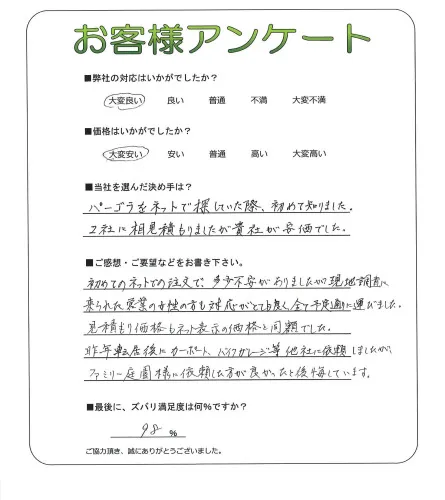 お客様アンケート
■弊社の対応はいかがでしたか？
大変良い 良い 普通 不満 大変不満
■価格はいかがでしたか？
大変安い 安い 普通 高い 大変高い
■当社を選んだ決め手は？
パーゴラをネットで探していた際、初めて知りました。
2社に相見積もりましたが貴社が安価でした。
■ご感想・ご要望などをお書き下さい。
初めてのネットでの注文で、多少不安がありましたが現地調査に
来られた営業の女性の方も対応がとても良く全て予定通りに運びました。
見積もり価格もネット表示の価格と同額でした。
昨年転居後にカーポート、バイクガレージ等他社に依頼しましたが、
ファミリー庭園様に依頼した方が良かったと後悔しています。
■最後に、ズバリ満足度は何%ですか？
98 %
ご協力頂き、誠にありがとうございました。